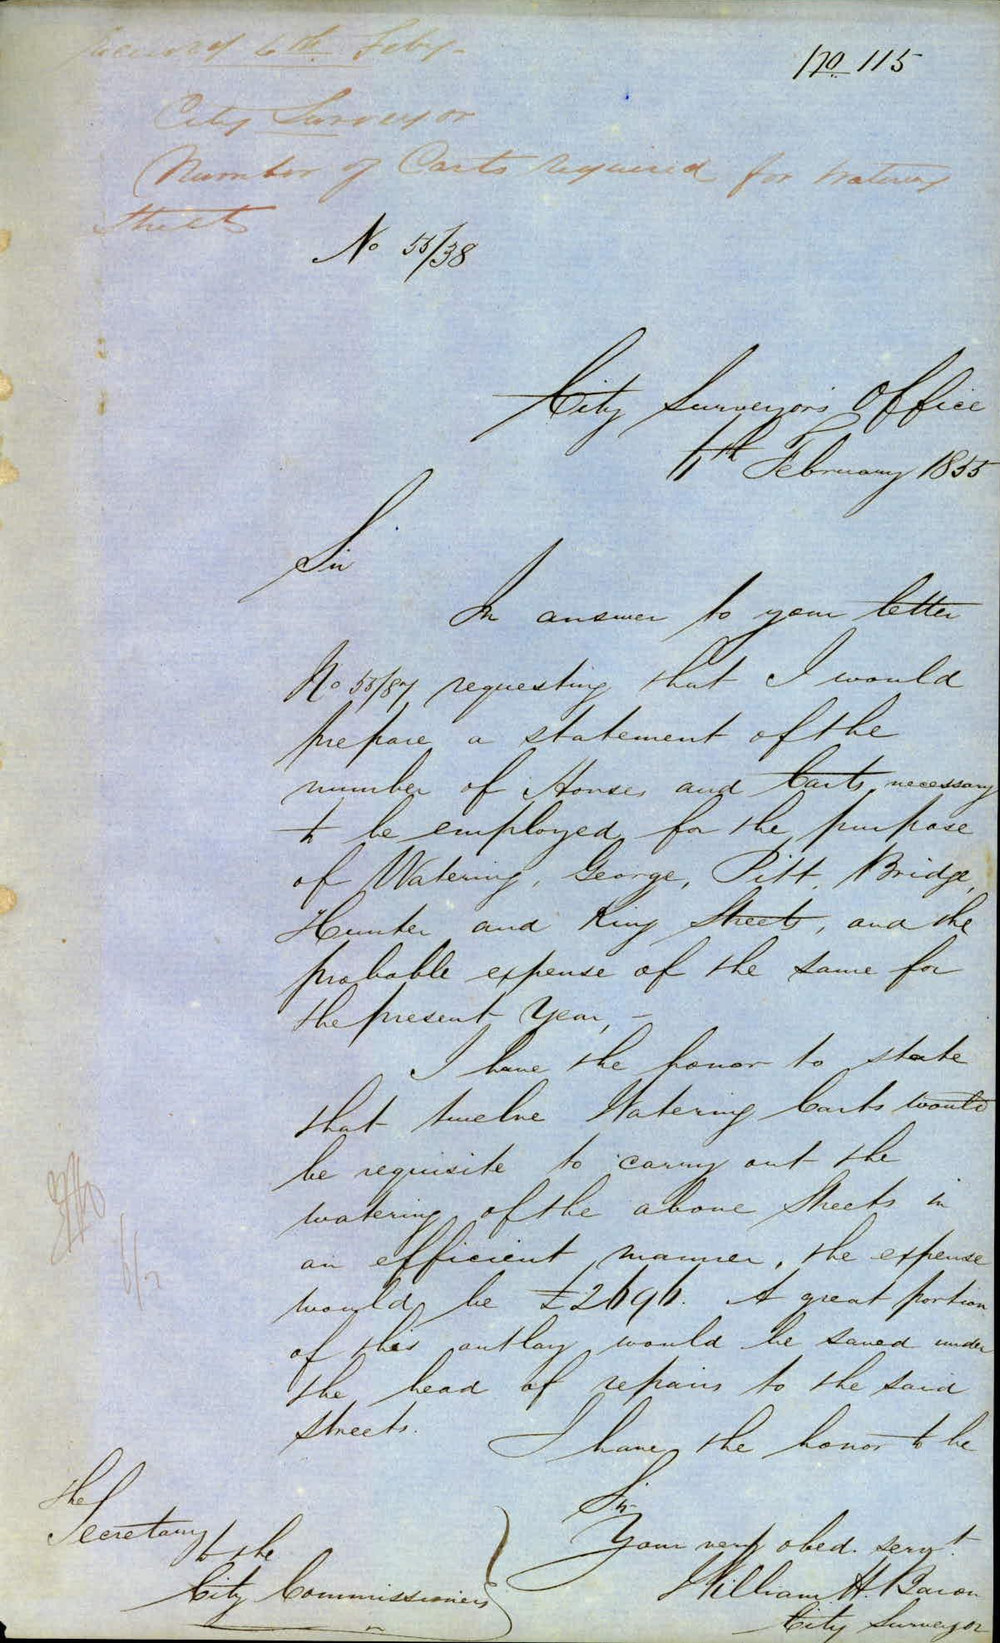 Received 6th Feby.
No 115
City Surveyor
Number of Carts required for watering
Streets
No 55/38
City Surveyors Office
6th February 1855
Sir
In answer to your letter
No 55/87 requesting that I would
prepare a statement of the
number of Horses and Carts necessary
to be employed for the purpose
of Watering, George, Pitt, Bridge,
Hunter and King Streets, and the
probable expense of the same for
the present Year, —
I have the honor to state
that twelve Watering Carts would
be requisite to carry out the
watering of the above Streets in
an efficient manner, the expense
would be £2696. A great portion
of this outlay would be saved under
the head of repairs to the said
streets.
I have the honor to be
Sir
Your very obed. servt.
William H. Baron
City Surveyor
The
Secretary
to the
City Commissioners
6/2